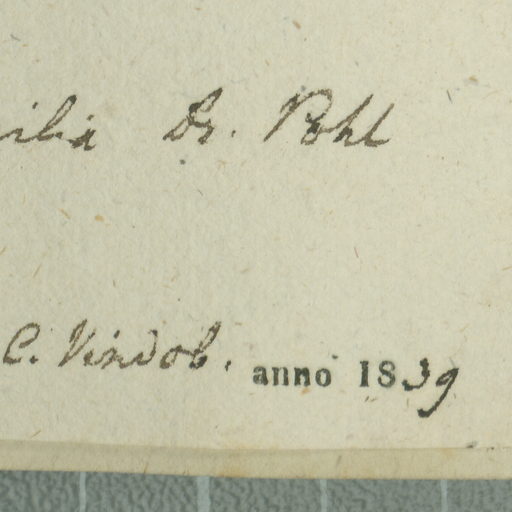 ilia Dr. Pohl
C. Vindob. anno 1839